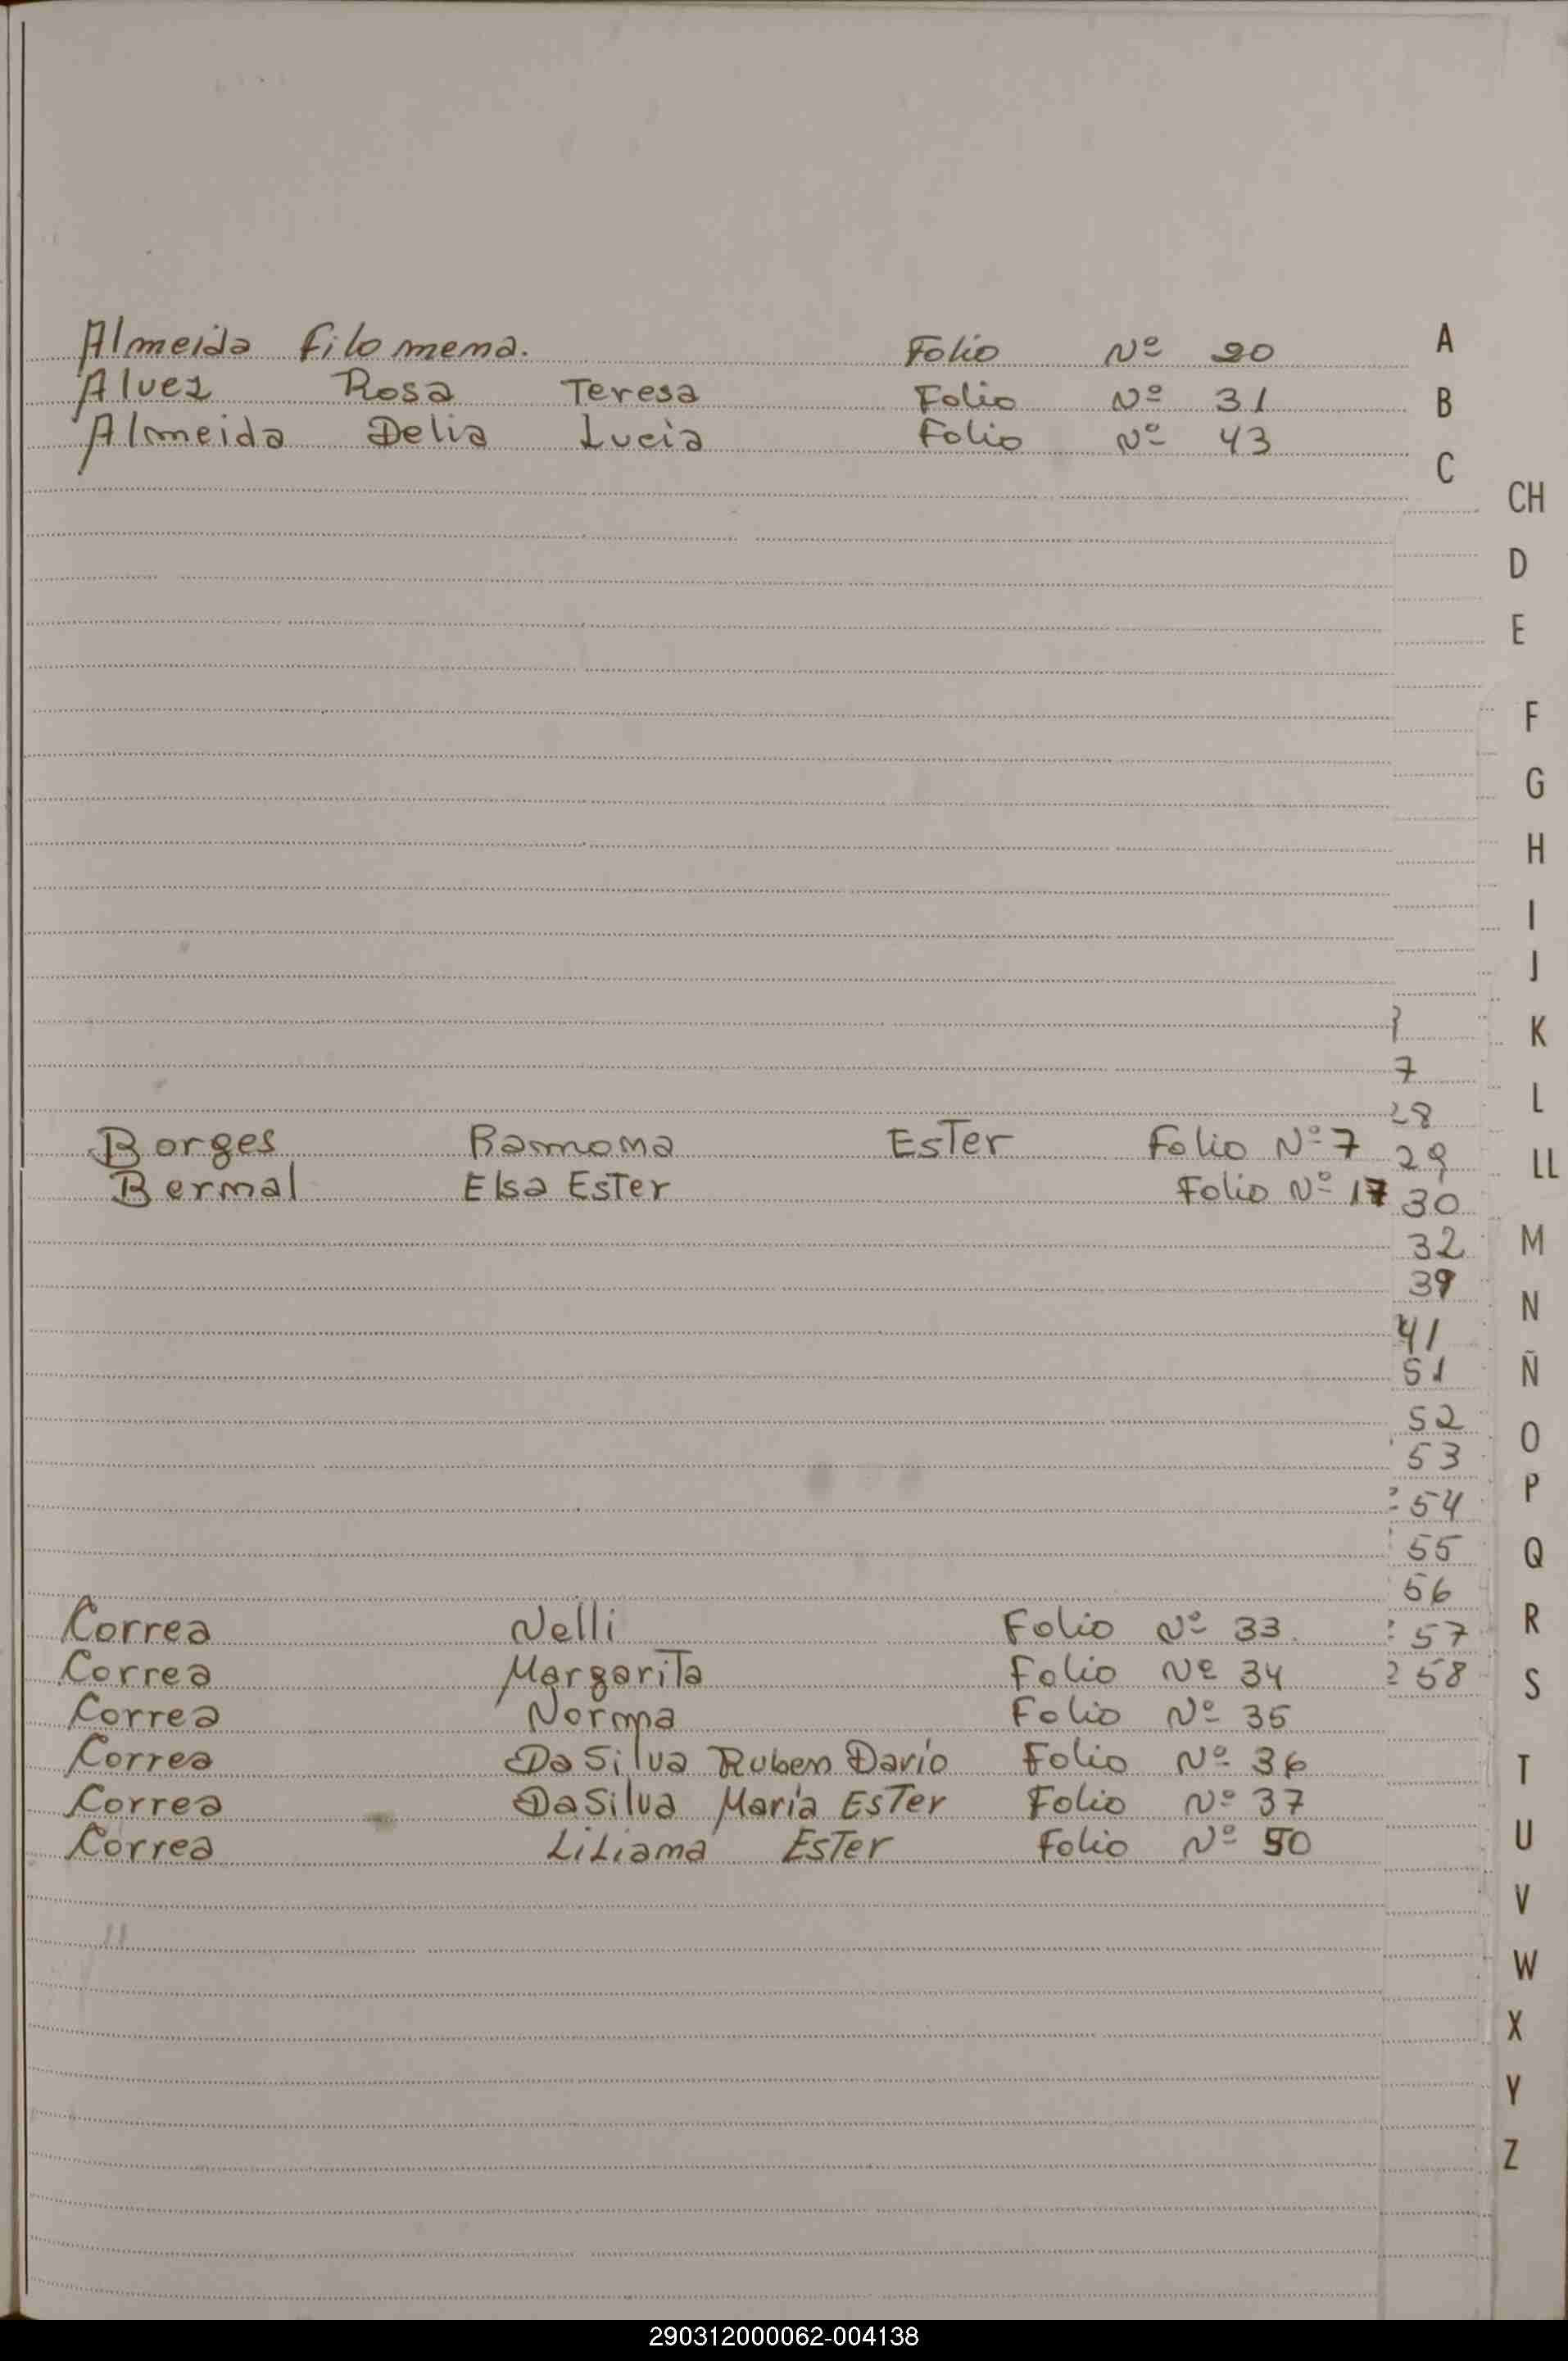 Almeida Filomena. Folio Nº 20 A
Alvez Rosa Teresa Folio Nº 31 B
Almeida Delia Lucia Folio Nº 43
C
CH
D
E
F
G
H
I
J
K
7
L
28
Borges Ramona Ester Folio Nº 7 29 LL
Bernal Elsa Ester Folio Nº 17 30
32 M
39 N
41
51 Ñ
52 O
53
54 P
55 Q
56
Correa Nelli Folio Nº 33. 57 R
Correa Margarita Folio Nº 34 58 S
Correa Norma Folio Nº 35
Correa Da Silva Ruben Dario Folio Nº 36 T
Correa Da Silva María Ester Folio Nº 37
Correa Liliana Ester Folio Nº 50 U
V
W
X
Y
Z
290312000062-004138